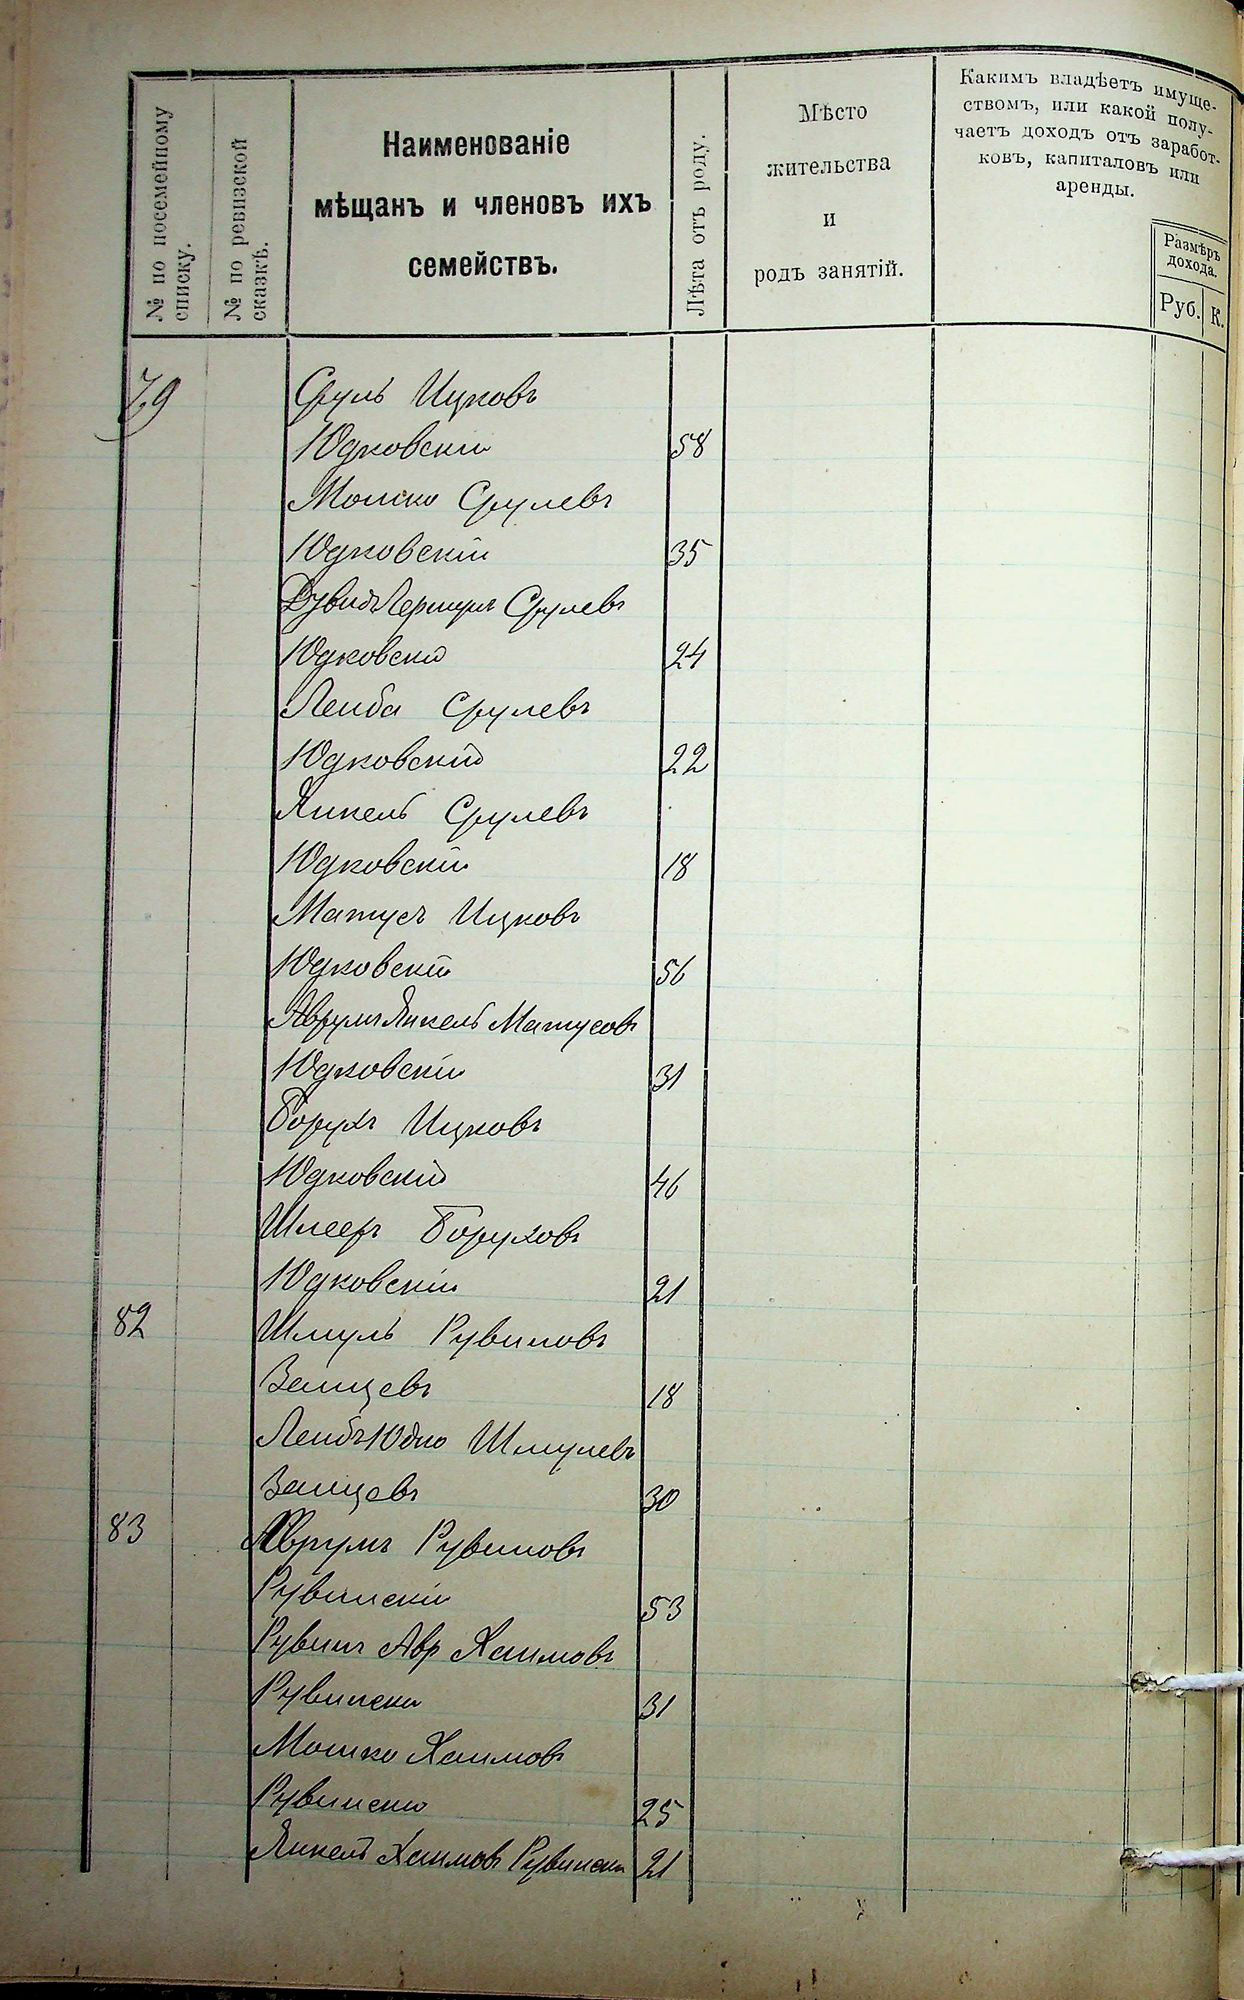 № по посемейному
списку.
№ по ревизской
сказкѣ.
Наименованіе
мѣщанъ и членовъ ихъ
семействъ.
Лѣта отъ роду.
Мѣсто
жительства
и
родъ занятій.
Какимъ владѣетъ имуще-
ствомъ, или какой полу-
чаетъ доходъ отъ заработ-
ковъ, капиталовъ или
аренды.
Размѣръ
дохода.
Руб. К.
79 Сруль Ицковъ
Юдковскій 58
Мошко Срулевъ
Юдковскій 35
Срулевъ
Юдковскій 24
Лейба Срулевъ
Юдковскій 22
Янкель Срулевъ
Юдковскій 18
Матусъ Ицковъ
Юдковскій 56
Аврумъ Янкель Матусовъ
Юдковскій 31
Борухъ Ицковъ
Юдковскій 46
Боруховъ
Юдковскій 21
82 Шмуль Рувиновъ
18
Лейбъ Юдко Шмулевъ
30
83 Аврумъ Рувиновъ
Рувинскій 53
Рувинъ Авр Хаимовъ
Рувинскій 31
Мошко Хаимовъ
Рувинскій 25
Янкель Хаимовъ Рувинскій 21